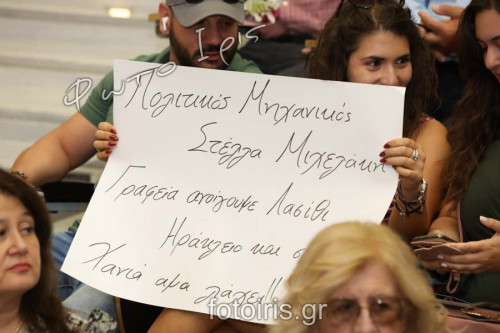 Φωτο Ιρις
Πολιτικός Μηχανικός
Στέλλα Μιχελάκη
Γραφεία ανοίγουμε Λασίθι
Ηράκλειο και σ
Χανιά άμα λάχει!!
fotoiris.gr